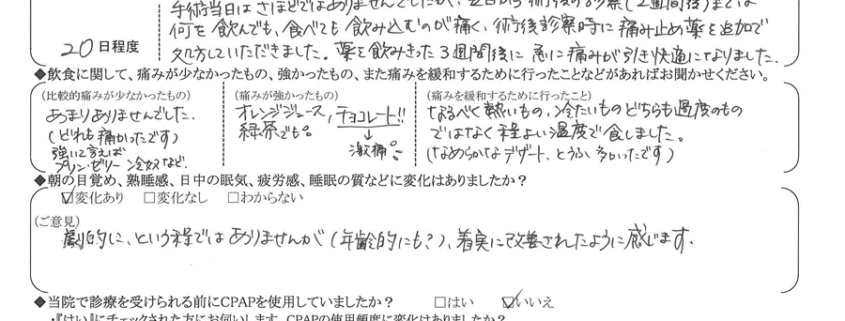 手術当日はさほどではありませんでしたが、翌日から術後の診察(2週間後)までは
何を飲んでも、食べても飲み込むのが痛く、術後診察時に痛み止め薬を追加で
20日程度
処方していただきました。薬を飲みきった3週間後に急に痛みが引き快適になりました。
◆飲食に関して、痛みが少なかったもの、強かったもの、また痛みを緩和するために行ったことなどがあればお聞かせください。
(比較的痛みが少なかったもの)
あまりありませんでした。
(どれも痛かったです)
強いて言えば
プリン・ゼリー 冷奴など。
(痛みが強かったもの)
オレンジジュース、チョコレート!!
緑茶でも。
↓
激痛
(痛みを緩和するために行ったこと)
なるべく熱いもの、冷たいものどちらも過度のもの
ではなく程よい温度で食しました。
(なめらかなデザート、とうふ、多かったです)
◆朝の目覚め、熟睡感、日中の眠気、疲労感、睡眠の質などに変化はありましたか?
☑変化あり □変化なし □わからない
(ご意見)
劇的に、という程ではありませんが(年齢的にも?)、着実に改善されたように感じます。
◆当院で診療を受けられる前にCPAPを使用していましたか? □はい ☑いいえ
・『はい』にチェックされた方にお伺いします。CPAPの使用頻度に変化はありましたか?